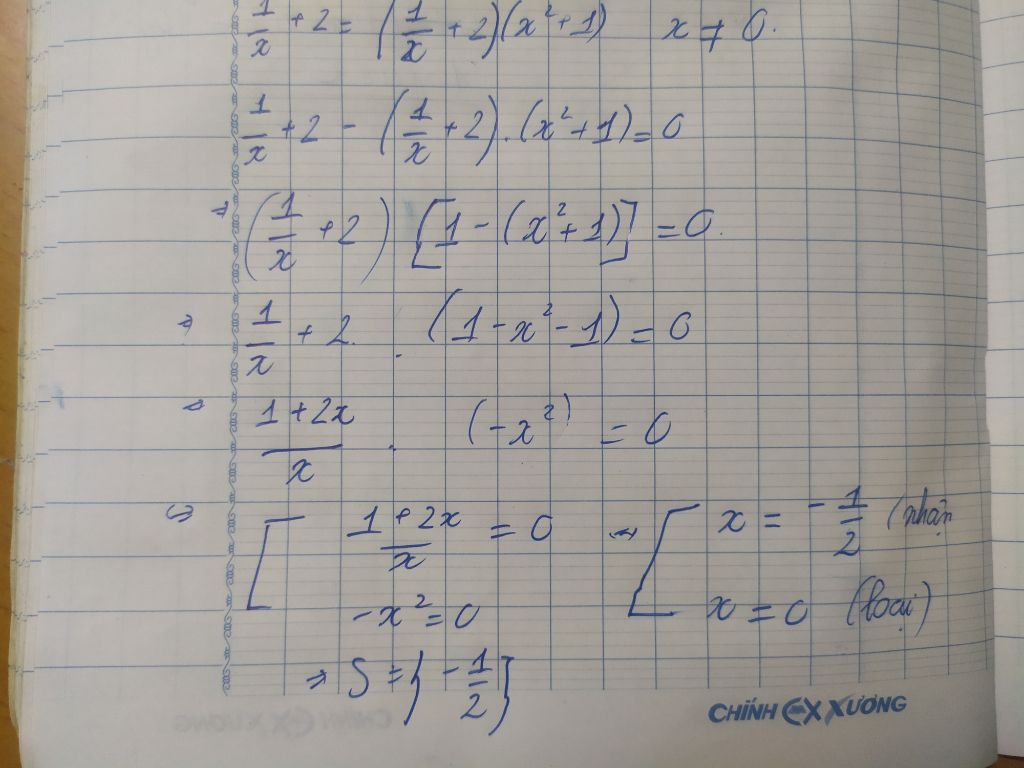 1/x + 2 = (1/x + 2)(x² + 1) x ≠ 0.
1/x + 2 - (1/x + 2).(x² + 1) = 0
⇒ (1/x + 2) [1 - (x² + 1)] = 0.
⇒ 1/x + 2 . (1 - x² - 1) = 0
⇒ (1 + 2x)/x . (-x²) = 0
⇔ [ (1 + 2x)/x = 0 ⇒ [ x = -1/2 (nhận
-x² = 0 x = 0 (loại)
⇒ S = {-1/2}
CHÍNH EX XƯƠNG